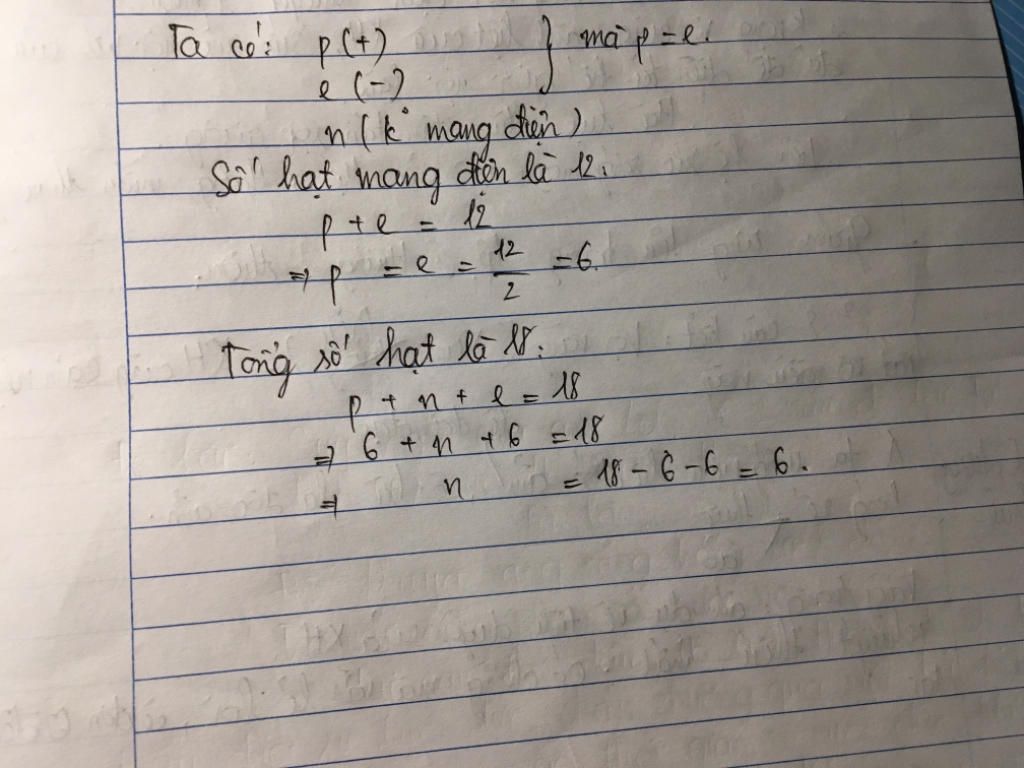 Ta có: p (+) } mà p = e.
e (-)
n (k° mang điện)
Số hạt mang điện là 12:
p + e = 12
⇒ p = e = 12/2 = 6.
Tổng số hạt là 18:
p + n + e = 18
⇒ 6 + n + 6 = 18
⇒ n = 18 - 6 - 6 = 6.